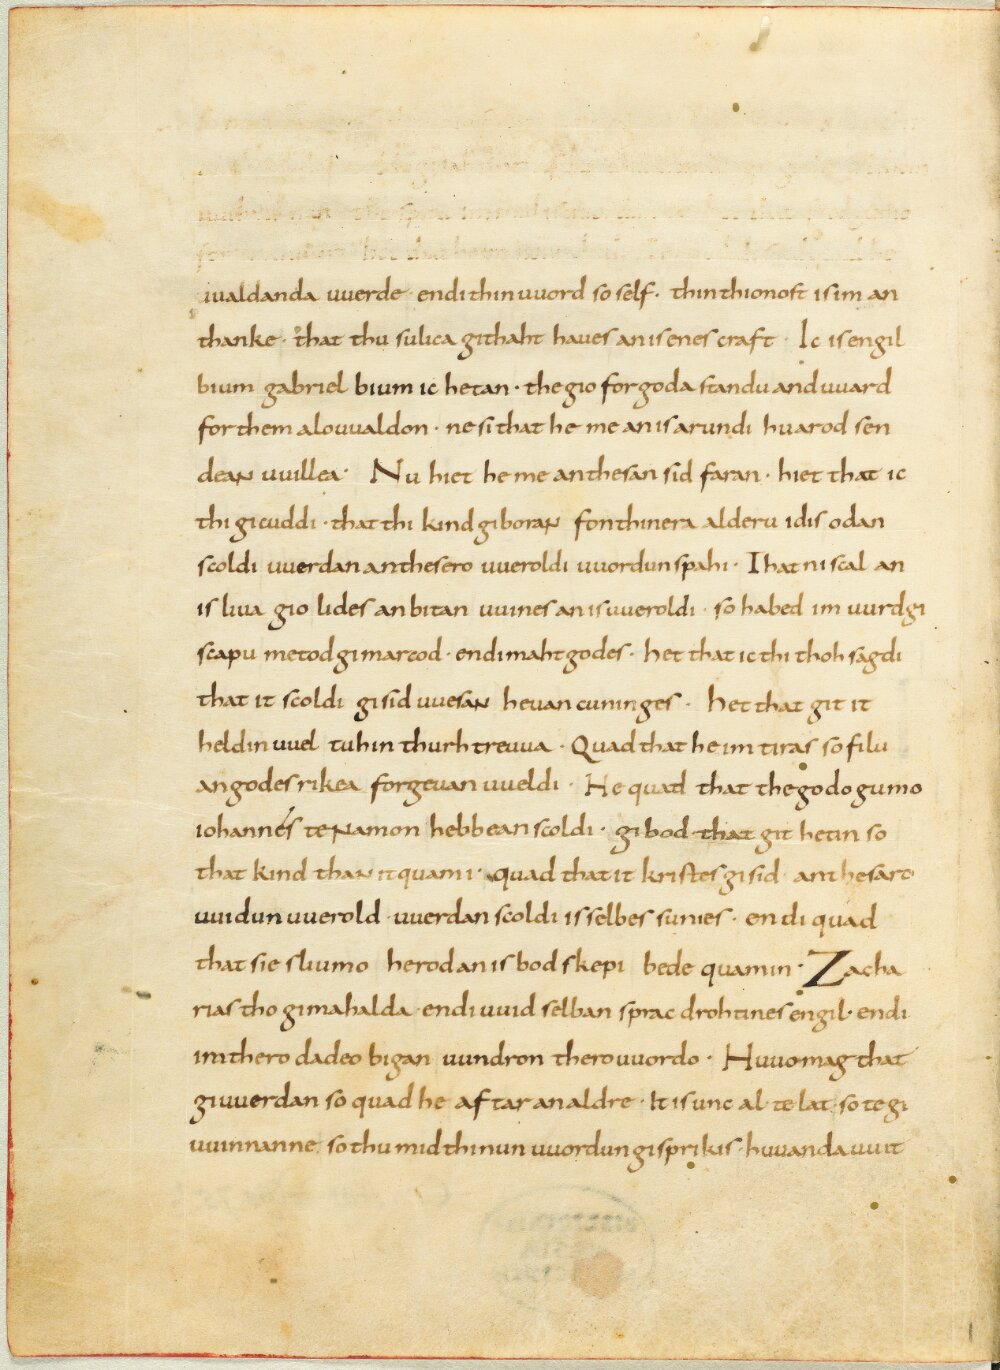 uualdanda uuerde endi thin uuord so self· thin thionost is im an
thanke· that thu sulica githaht haues an is enes craft· Ic is engil
bium gabriel bium ic hetan· the gio for goda standu anduuard
for them alouualdon· ne si that he me an is arundi huarod sen
dean uuillea· Nu hiet he me an thesan sid faran· hiet that ic
thi gicuddi· that thi kind giboran fon thinera alderu idis odan
scoldi uuerdan an thesero uueroldi uuordun spahi· That ni scal an
is liua gio lides anbitan uuines an is uueroldi· so habed im uurdgi
scapu metod gimarcod· endi maht godes· het that ic thi thoh sagdi
that it scoldi gisid uuesan heuancuninges· het that git it
heldin uuel tuhin thurh treuua· Quad that he im tiras so filu
an godes rikea forgeuan uueldi· He quad that the godo gumo
iohannes te namon hebbean scoldi· gibod that git hetin so
that kind than it quami· quad that it kristes gisid an thesaro
uuidun uuerold uuerdan scoldi is selbes sunies· endi quad
that sie sliumo herod an is bodskepi bede quamin· Zacha
rias tho gimahalda endi uuid selban sprac drohtines engil· endi
im thero dadeo bigan uundron thero uuordo· Huuo mag that
giuuerdan so quad he aftar an aldre· It is unc al te lat· so te gi
uuinnanne so thu mid thinun uuordun gisprikis· huuanda uuit